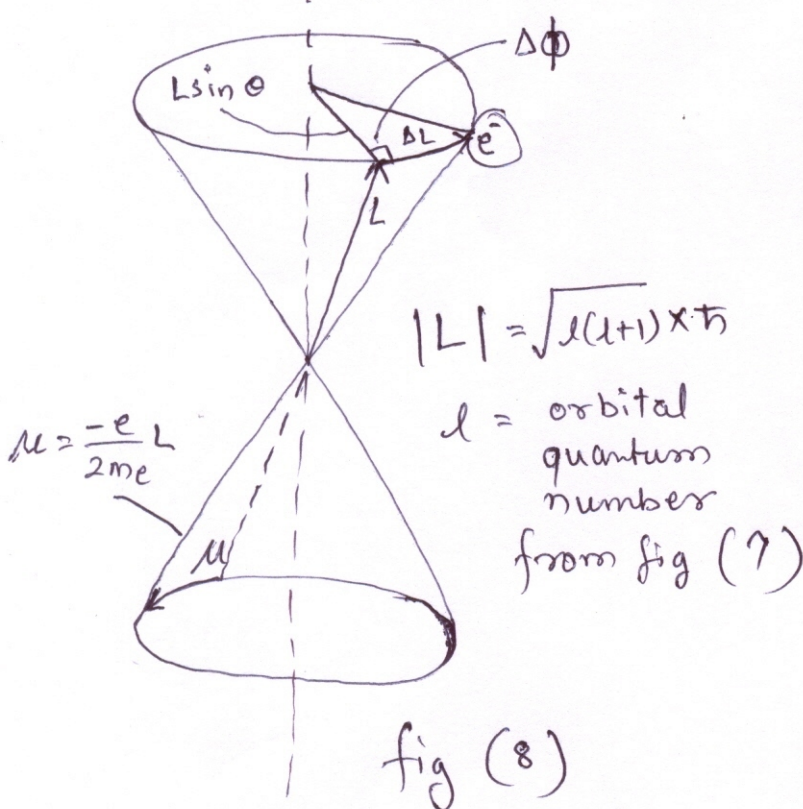 Δϕ
L sin θ
ΔL
e⁻
L
|L| = √l(l+1) × ħ
l = orbital
quantum
number
from fig (7)
μ = -e/2me L
μ
fig (8)